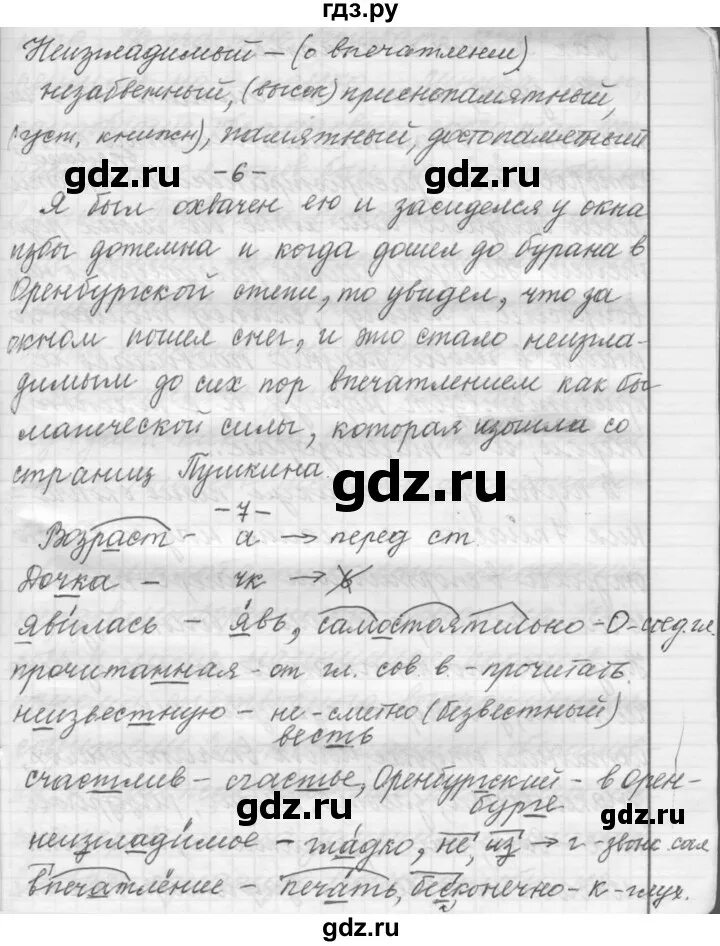 гдз.ру
Неизгладимый – (о впечатлении)
незабвенный, (высок) приснопамятный,
(уст, книжн), памятный, достопамятный
gdz.ru -6- gdz.ru
Я был охвачен ею и засиделся у окна
избы дотемна и когда дошел до бурана в
Оренбургской степи, то увидел, что за
окном пошел снег, и это стало неизгла-
димым до сих пор впечатлением как бы
магической силы, которая изошла со
страниц Пушкина.
gdz.ru
-7-
Возраст – а → перед ст.
Дочка – чк → ь
явилась – явь, самостоятельно – О – соед. гл.
прочитанная – от гл. сов. в. – прочитать.
неизвестную – не – сметно (безвестный)
весть
счастлив – счастье, Оренбургский – в Орен-
бурге
gdz.ru gdz.ru
неизгладимое – гладко, не, из → г – звонк. согл.
впечатление – печать, бесконечно – к – глух.
gdz.ru